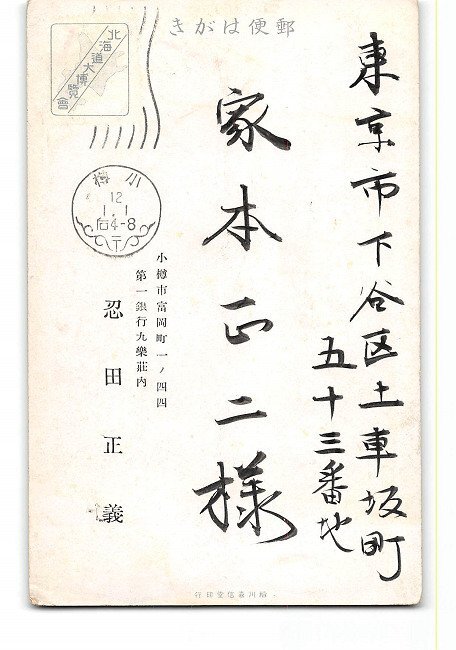 郵便はがき
北海道大博覧會
東京市下谷区上車坂町
五十三番地
家本正二様
小樽
12
1.1
后4-8
小樽市富岡町一ノ四四
第一銀行九樂莊内
忍田正義